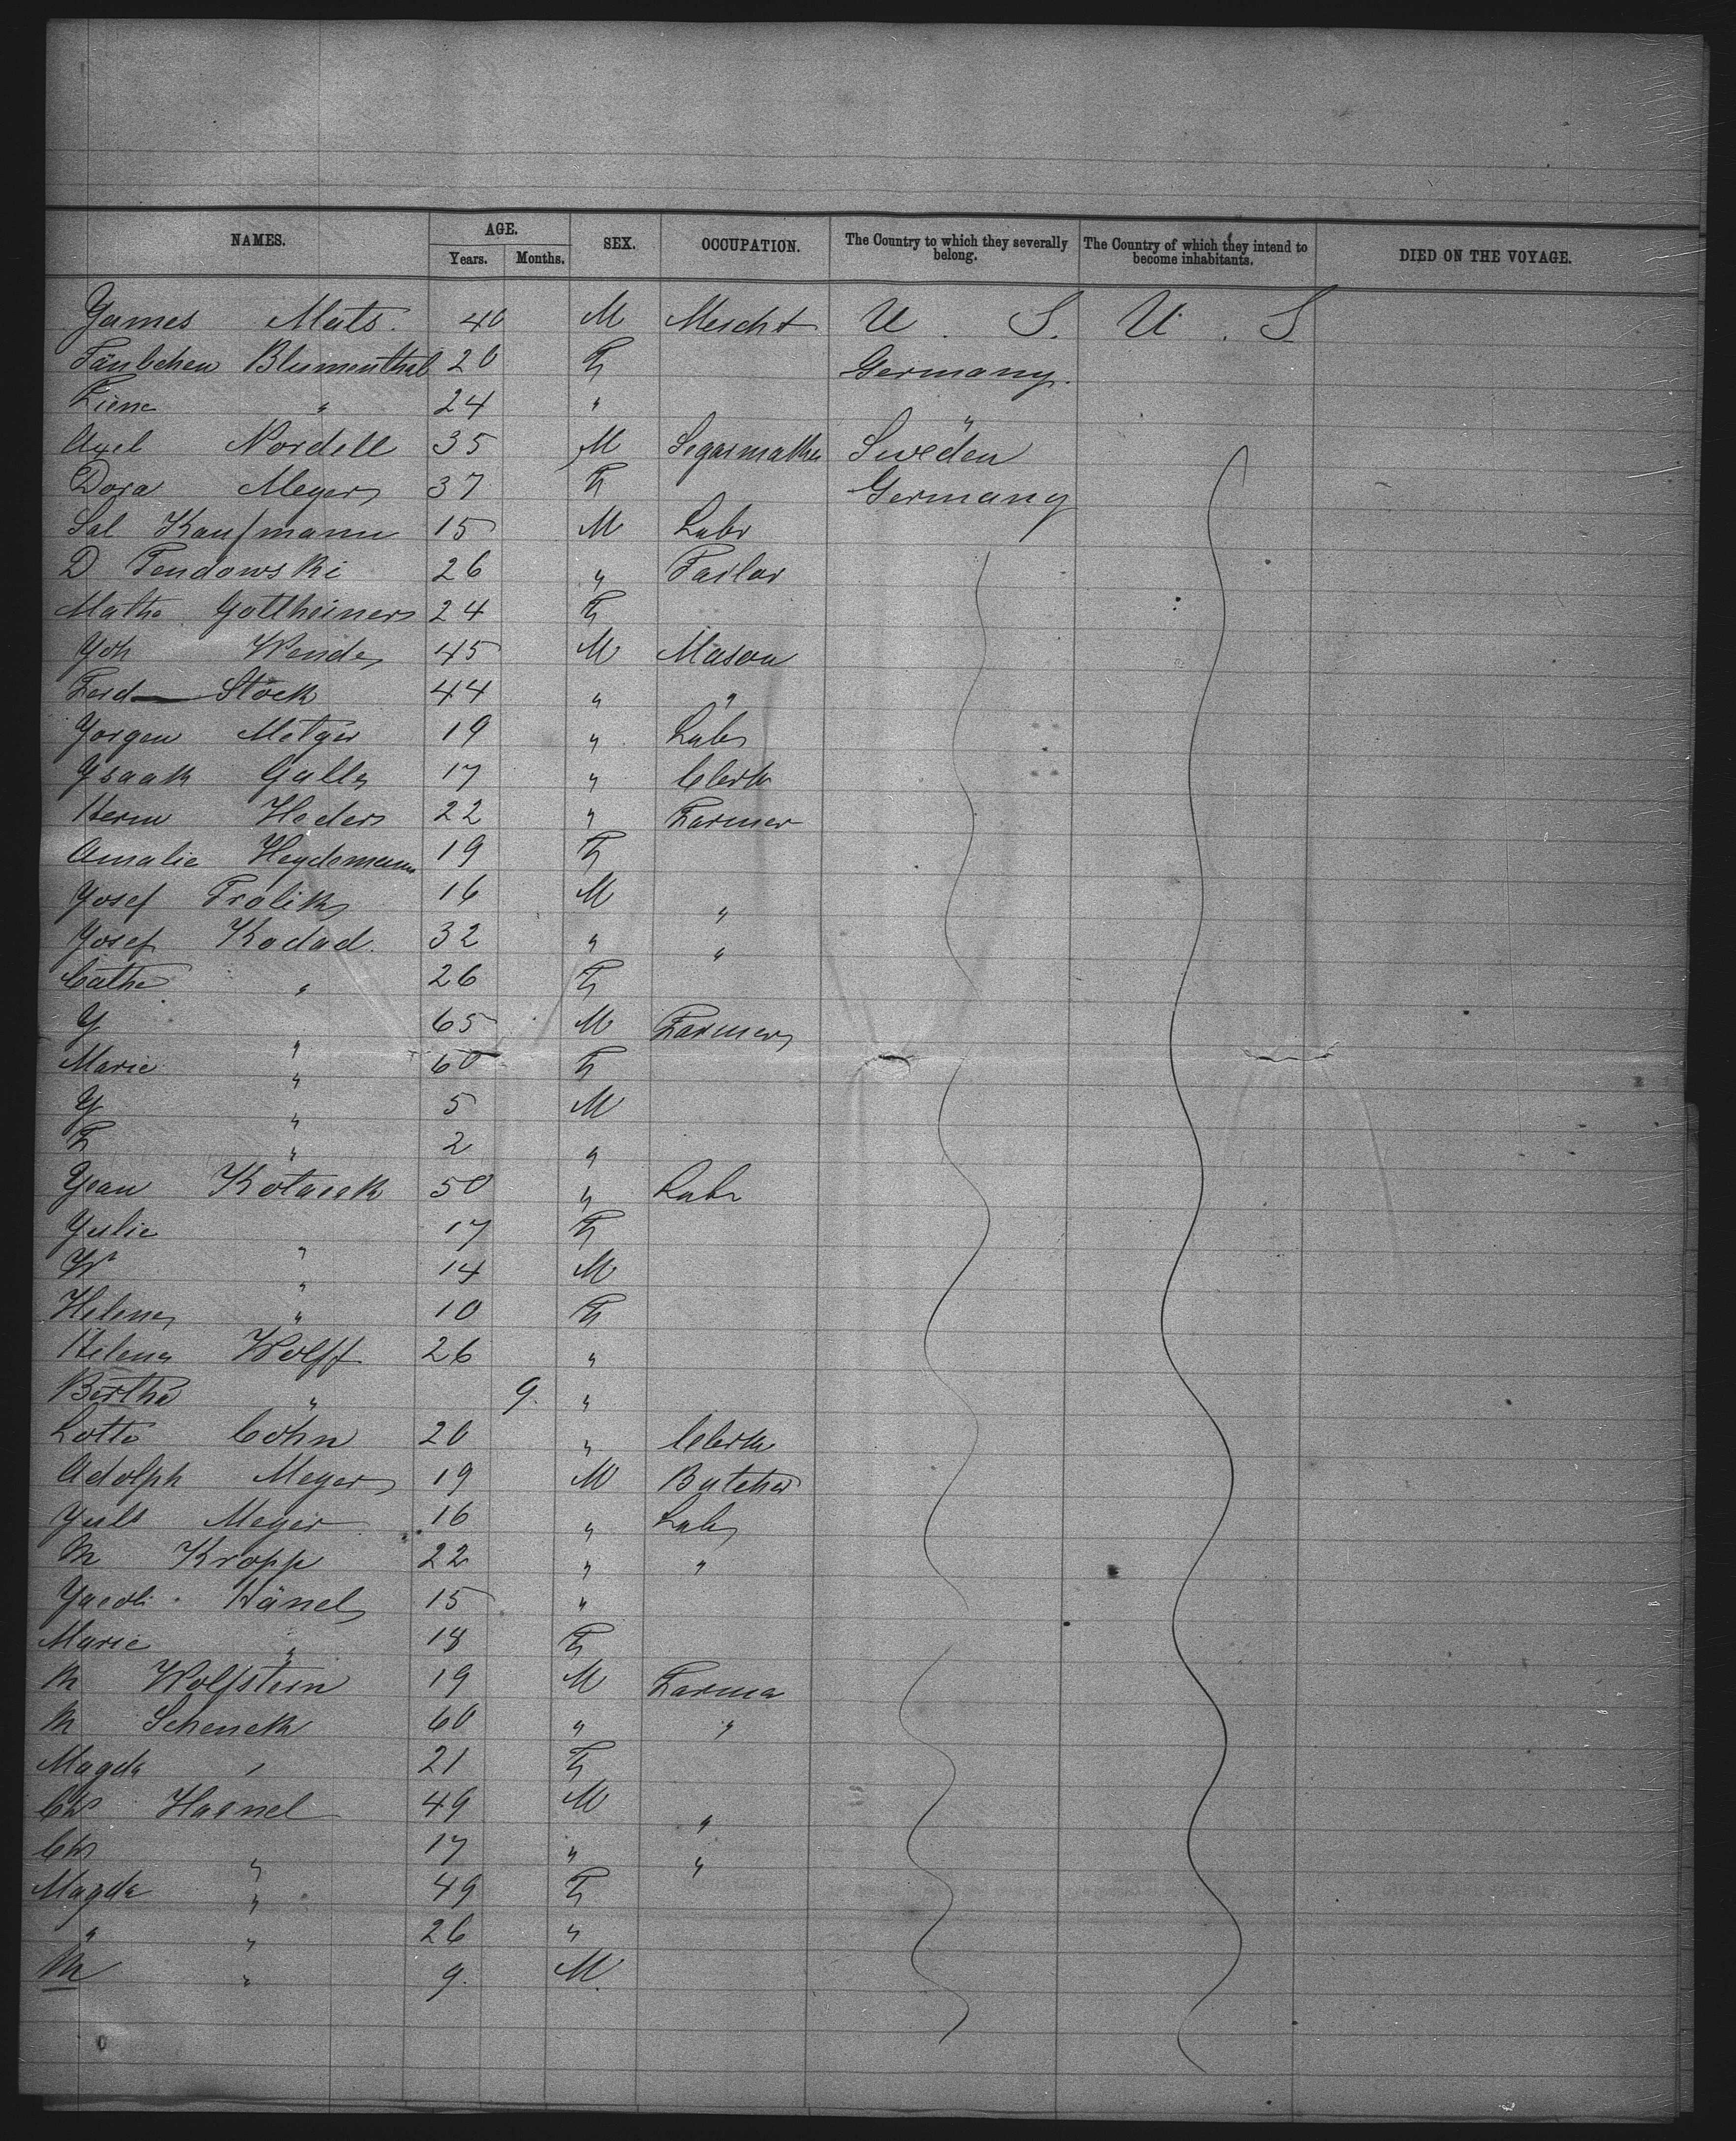 NAMES. AGE. SEX. OCCUPATION. The Country to which they severally belong. The Country of which they intend to become inhabitants. DIED ON THE VOYAGE.
Years. Months.
James Mats. 40 M Mercht U. S. U. S
Täubchen Blumenthal 20 F Germany.
Liene " 24 "
Axel Nordell 35 M Segarmaker Sweden "
Dora Meyer 37 F Germany
Sal Kaufmann 15 M Labr
D Tendowski 26 " Tailor
Mathe Gottheiner 24 F
Joh Wende 45 M Mason
Ferd Stock 44 " "
Jorgen Metger 19 " Labr
Isaak Galle 17 " Clerk
Herm Heders 22 " Farmer
Amalie Heydemann 19 F
Josef Trolik 16 M "
Josef Kadad. 32 " "
Cathe " 26 F
J " 65 M Farmer
Marie " 60 F
J " 5 M
F " 2 "
Jean Kotasek 50 " Labr
Julie " 17 F
W " 14 M
Helene " 10 F
Helena Wolff 26 "
Bertha " 9. "
Lotte Cohn 20 " Clerk
Adolph Meyer 19 M Butcher
Juls Meyer 16 " Labr
M Kropp 22 " "
Jacob Hänel 15 "
Marie " 18 F
M Wolfstein 19 M Farmer
M Schenck 60 " "
Magda " 21 F
Chr Haenel 49 M "
Chr " 17 " "
Magda " 49 F
" " 26 "
M " 9. M